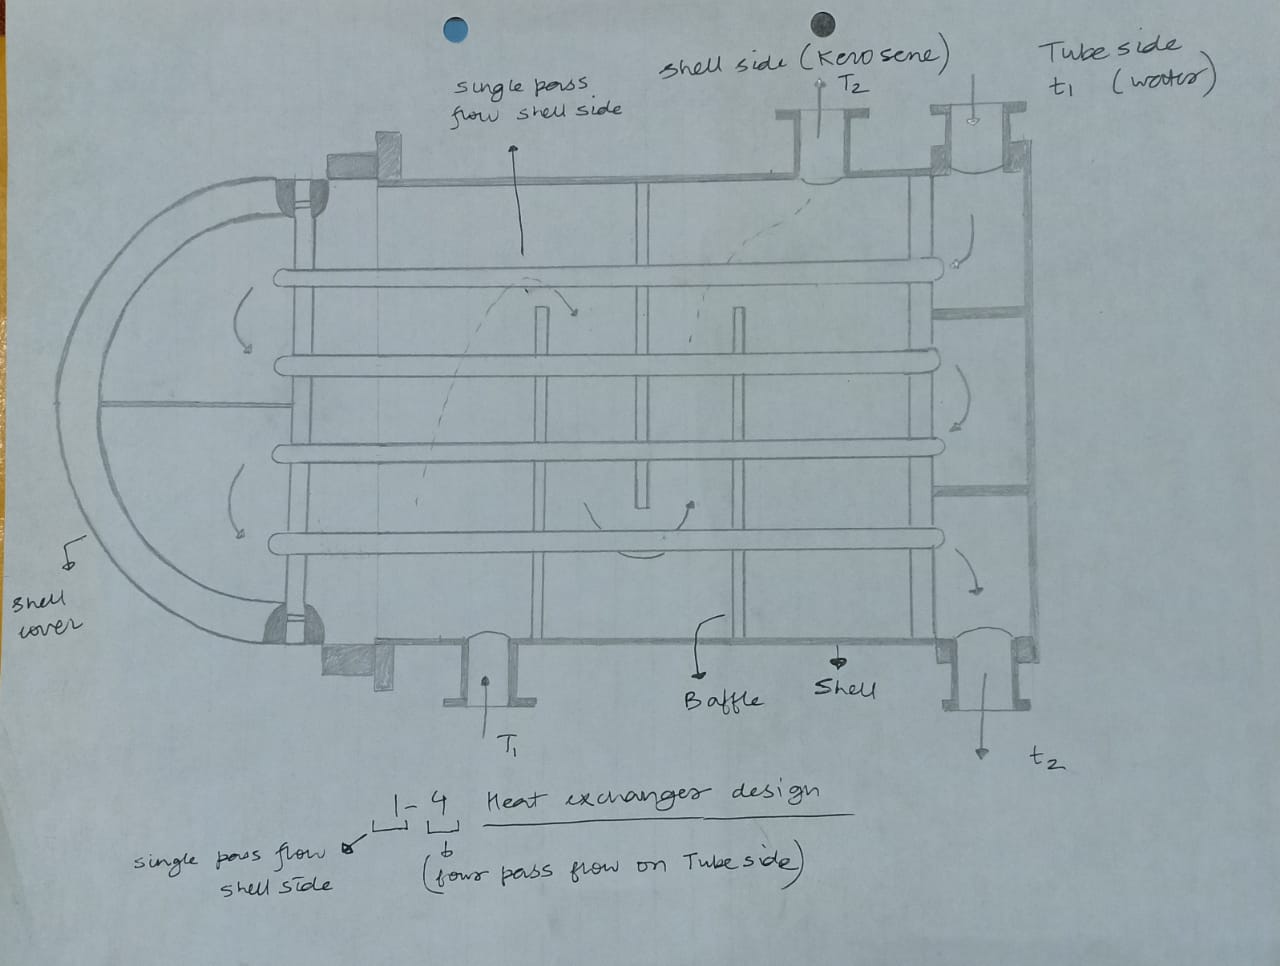 single pass
flow shell side
shell side (Kerosene)
T2
Tube side
t1 (water)
shell
cover
Baffle
Shell
T1
t2
1-4 Heat exchanger design
single pass flow
shell side
(four pass flow on Tube side)